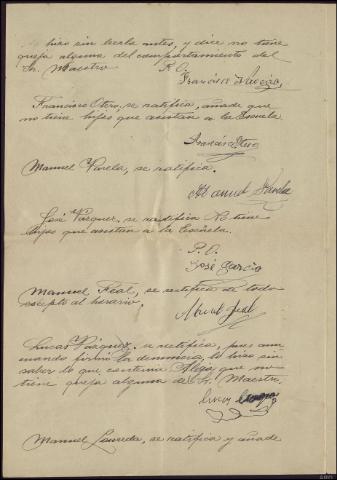 hizo sin leerla antes, y dice no tiene
queja alguna del comportamiento del
Sr. Maestro P. O.
Francisco García
Francisco Otero, se ratifica, añade que
no tiene hijos que asistan a la Escuela
Francisco Otero
Manuel Varela, se ratifica.
Manuel Varela
José Vázquez, se ratifica No tiene
hijos que asistan a la Escuela.
P. O.
José García
Manuel Leal, se ratifica de todo
escepto al horario.
Manuel Leal
Lucas Vázquez se ratifica, pues aun
cuando firmó la denuncia, lo hizo sin
saber lo que contenia Alega que no
tiene queja alguna del Sr. Maestro.
Lucas
Manuel Laureda, se ratifica y añade